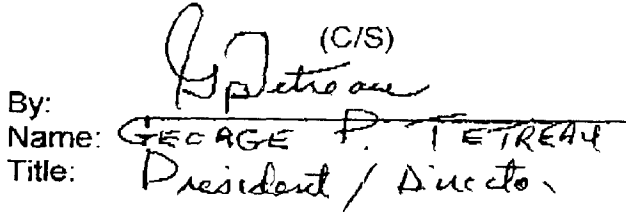 (C/S)
By: GPTetreau
Name: GEORGE P. TETREAU
Title: President / Director